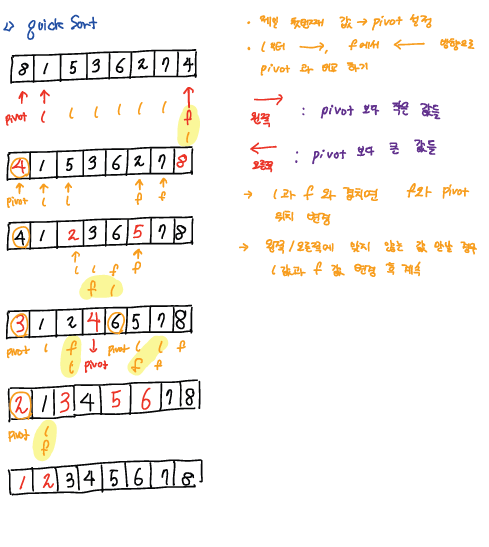 ⇒ quick Sort
8 1 5 3 6 2 7 4
pivot i i i i i i f
i
4 1 5 3 6 2 7 8
pivot i i f f
4 1 2 3 6 5 7 8
i i f f
f i
3 1 2 4 6 5 7 8
pivot i f ↓ pivot i i f
i pivot f f
2 1 3 4 5 6 7 8
pivot i
f
1 2 3 4 5 6 7 8
· 제일 첫번째 값 → pivot 설정
· i부터 →, f에서 ← 방향으로
pivot 와 비교 하기
→
왼쪽 : pivot 보다 작은 값들
←
오른쪽 : pivot 보다 큰 값들
→ i와 f 와 겹치면 f와 pivot
위치 변경
→ 왼쪽/오른쪽에 맞지 않는 값 만날 경우
i 값과 f 값 변경 후 계속